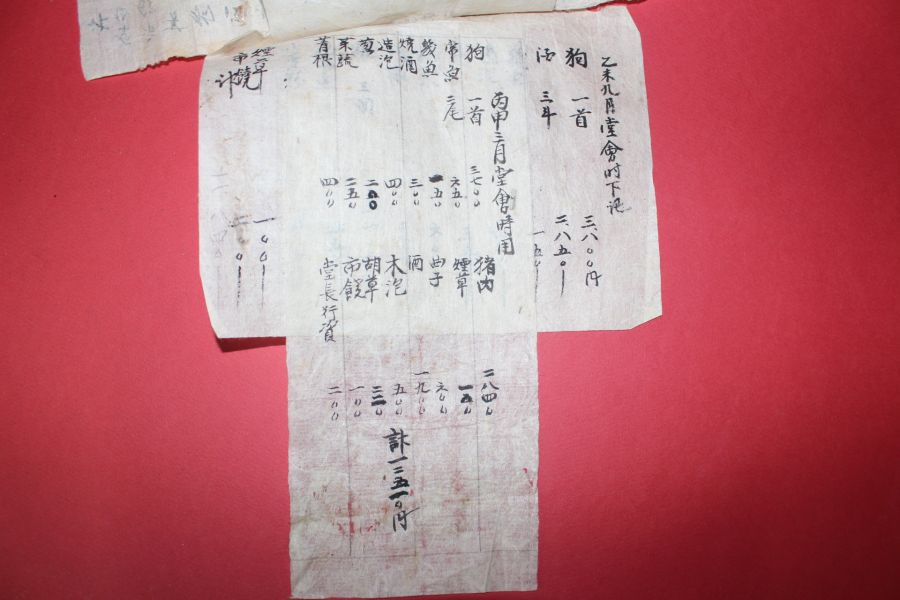 乙未九月堂會时下记
狗 一首 三,八〇〇円
酒 三斗 二,八五〇
一五〇
丙申三月堂會時用
狗 一首 三七〇〇
帝魚 二尾 六五〇
魚 一五〇
焼酒 三〇〇
造泡 四〇〇
葱 二〇〇
菜蔬 二五〇
苩根 四〇〇
猪肉 二八四〇
煙草 一五〇
曲子 六〇〇
酒 一九〇〇
木泡 五〇〇
胡草
市饒 一〇〇
堂長行資 二〇〇
計一二五一〇円
煙草 一〇〇
市饒
計